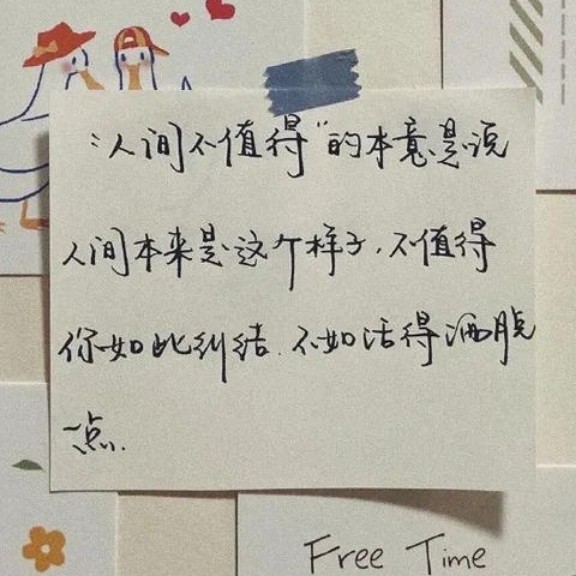 “人间不值得”的本意是说
人间本来是这个样子,不值得
你如此纠结.不如活得洒脱
一点.
Free Time